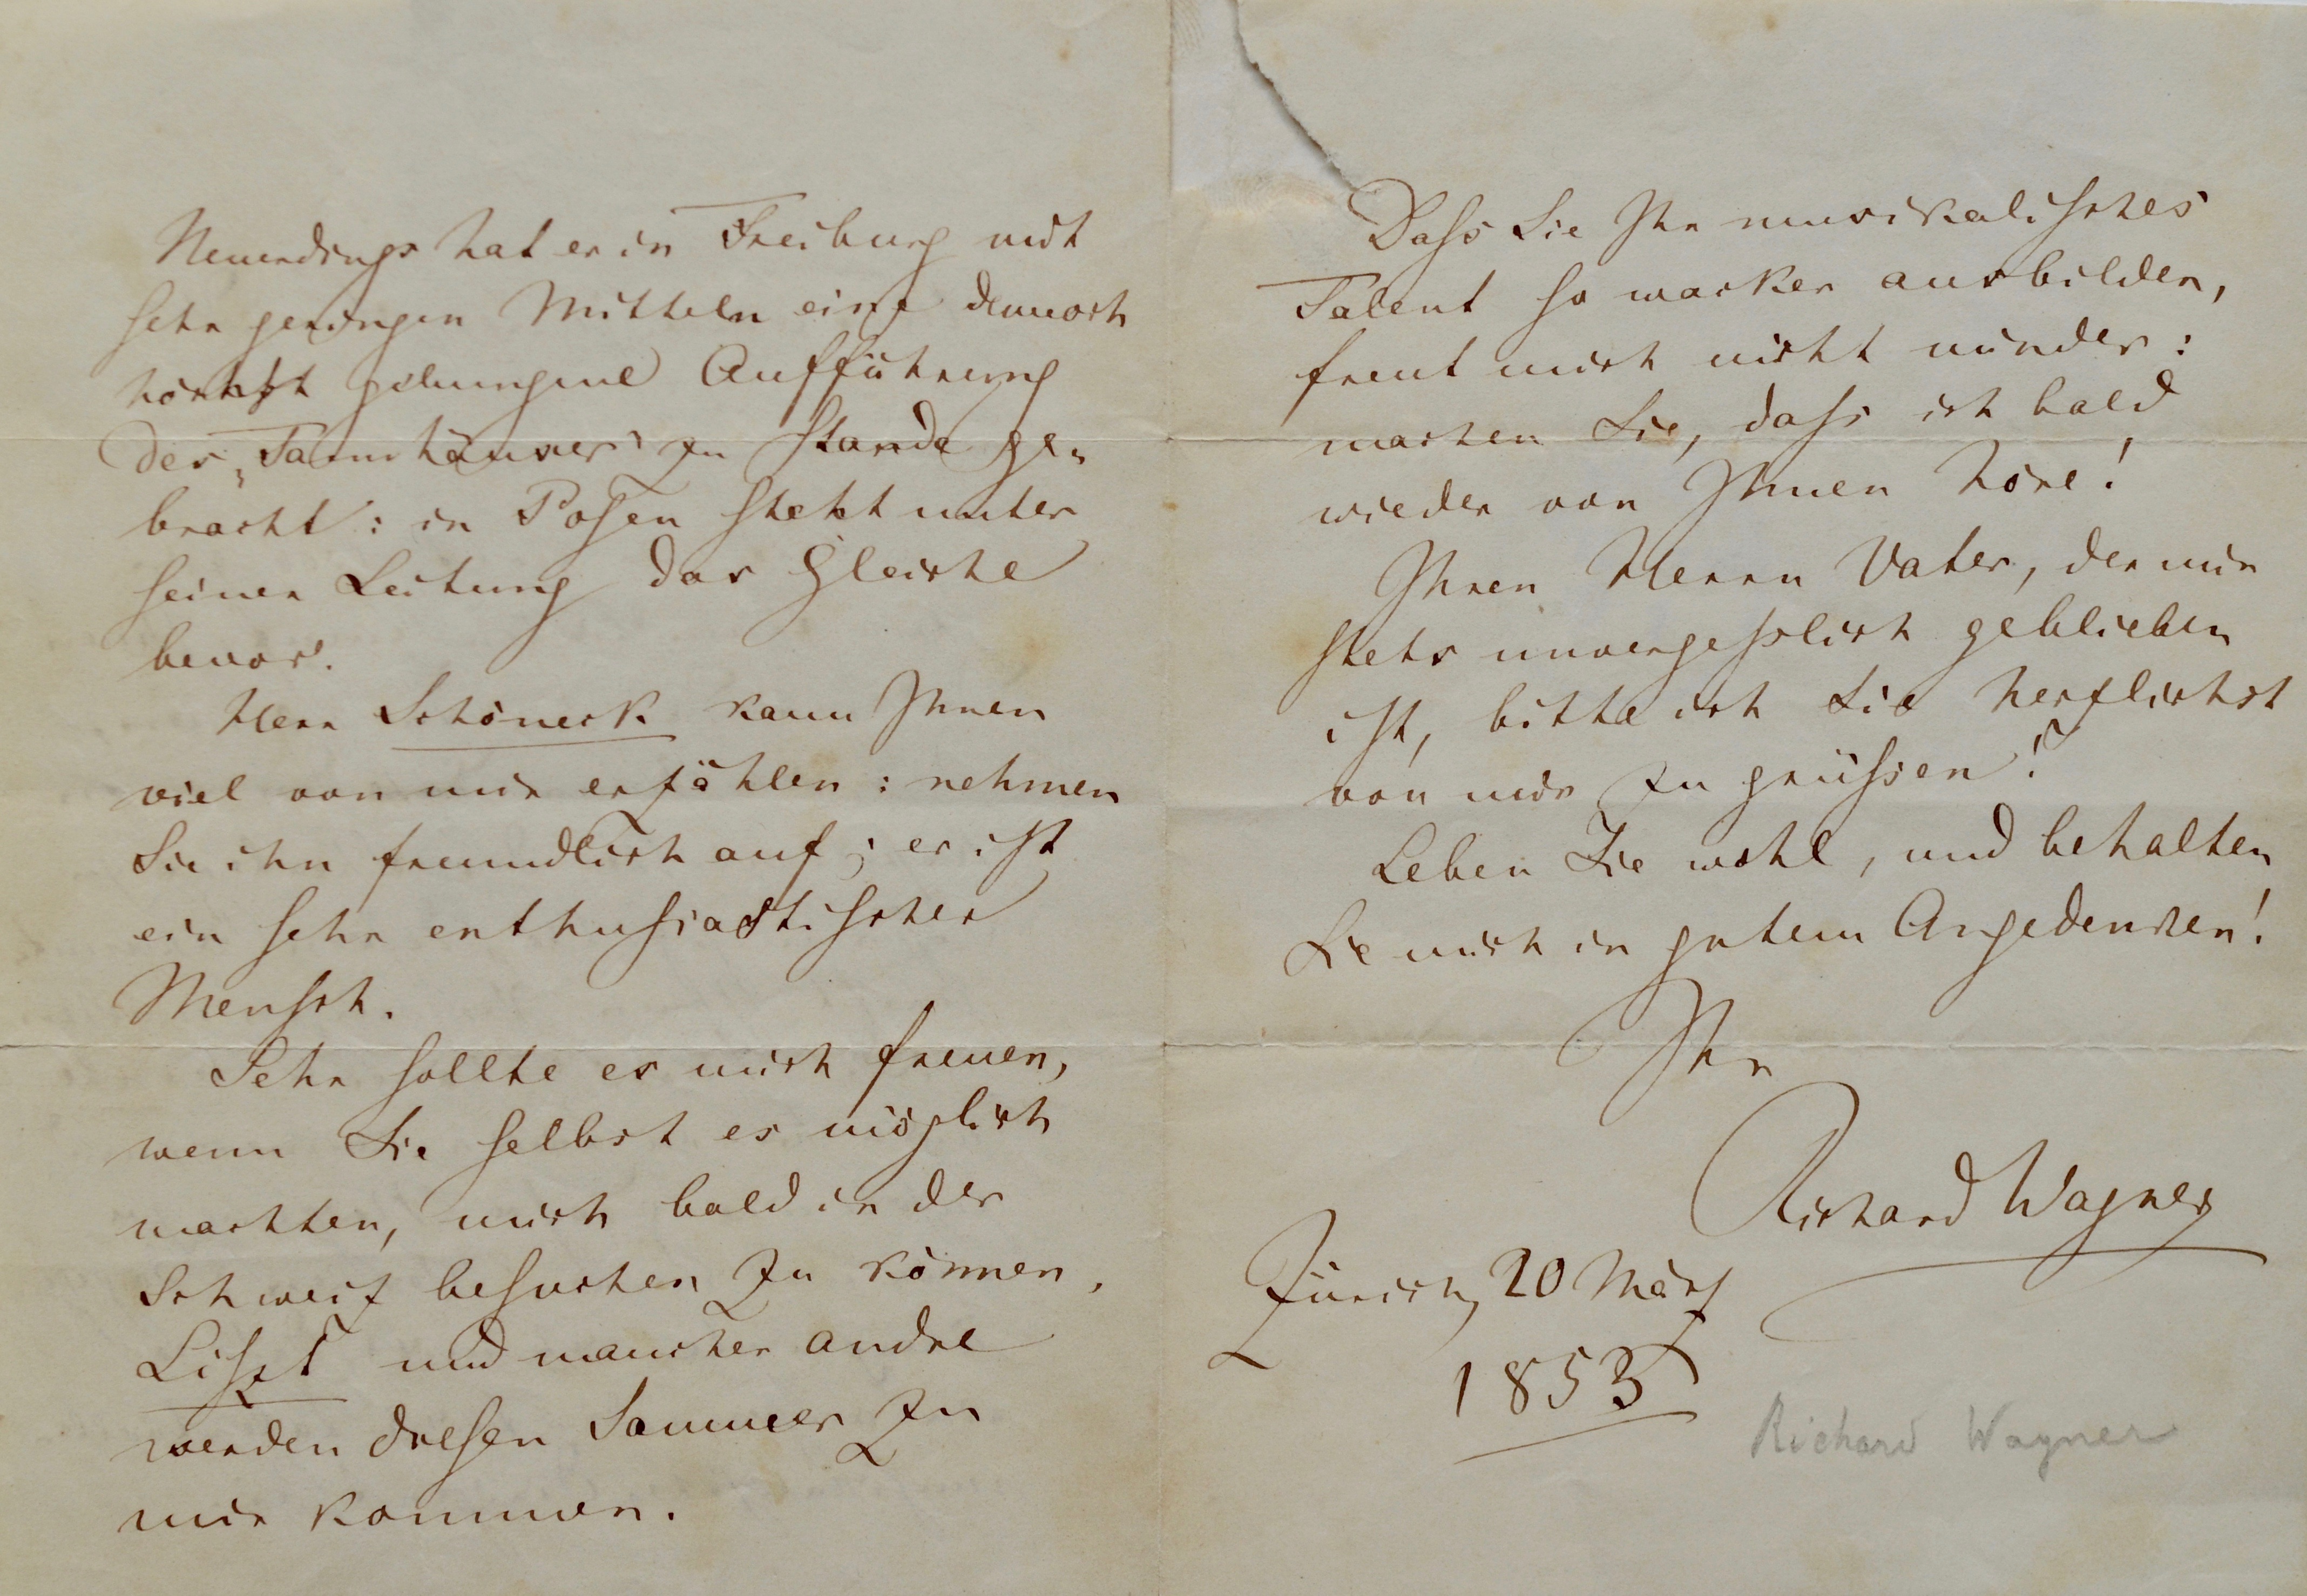 Neuerdings hat er in Freiburg mit
sehr geringen Mitteln eine dennoch
höchst gelungene Aufführung
des „Tannhäuser" zu Stande ge-
bracht: in Posen steht unter
seiner Leitung das Gleiche
bevor.
Herr Schöneck kann Ihnen
viel von mir erzählen: nehmen
Sie ihn freundlich auf; er ist
ein sehr enthusiastischer
Mensch.
Sehr sollte es mich freuen,
wenn Sie selbst es möglich
machten, mich bald in der
Schweiz besuchen zu können.
Liszt und mancher andre
werden diesen Sommer zu
mir kommen.
Dass Sie Ihr musikalisches
Talent so wacker ausbilden,
freut mich nicht minder:
machen Sie, dass ich bald
wieder von Ihnen höre!
Ihren Herrn Vater, der mir
stets unvergesslich geblieben
ist, bitte ich Sie herzlichst
von mir zu grüssen!
Leben Sie wohl, und behalten
Sie mich in gutem Angedenken!
Ihr
Richard Wagner
Zürich, 20 März
1853
Richard Wagner